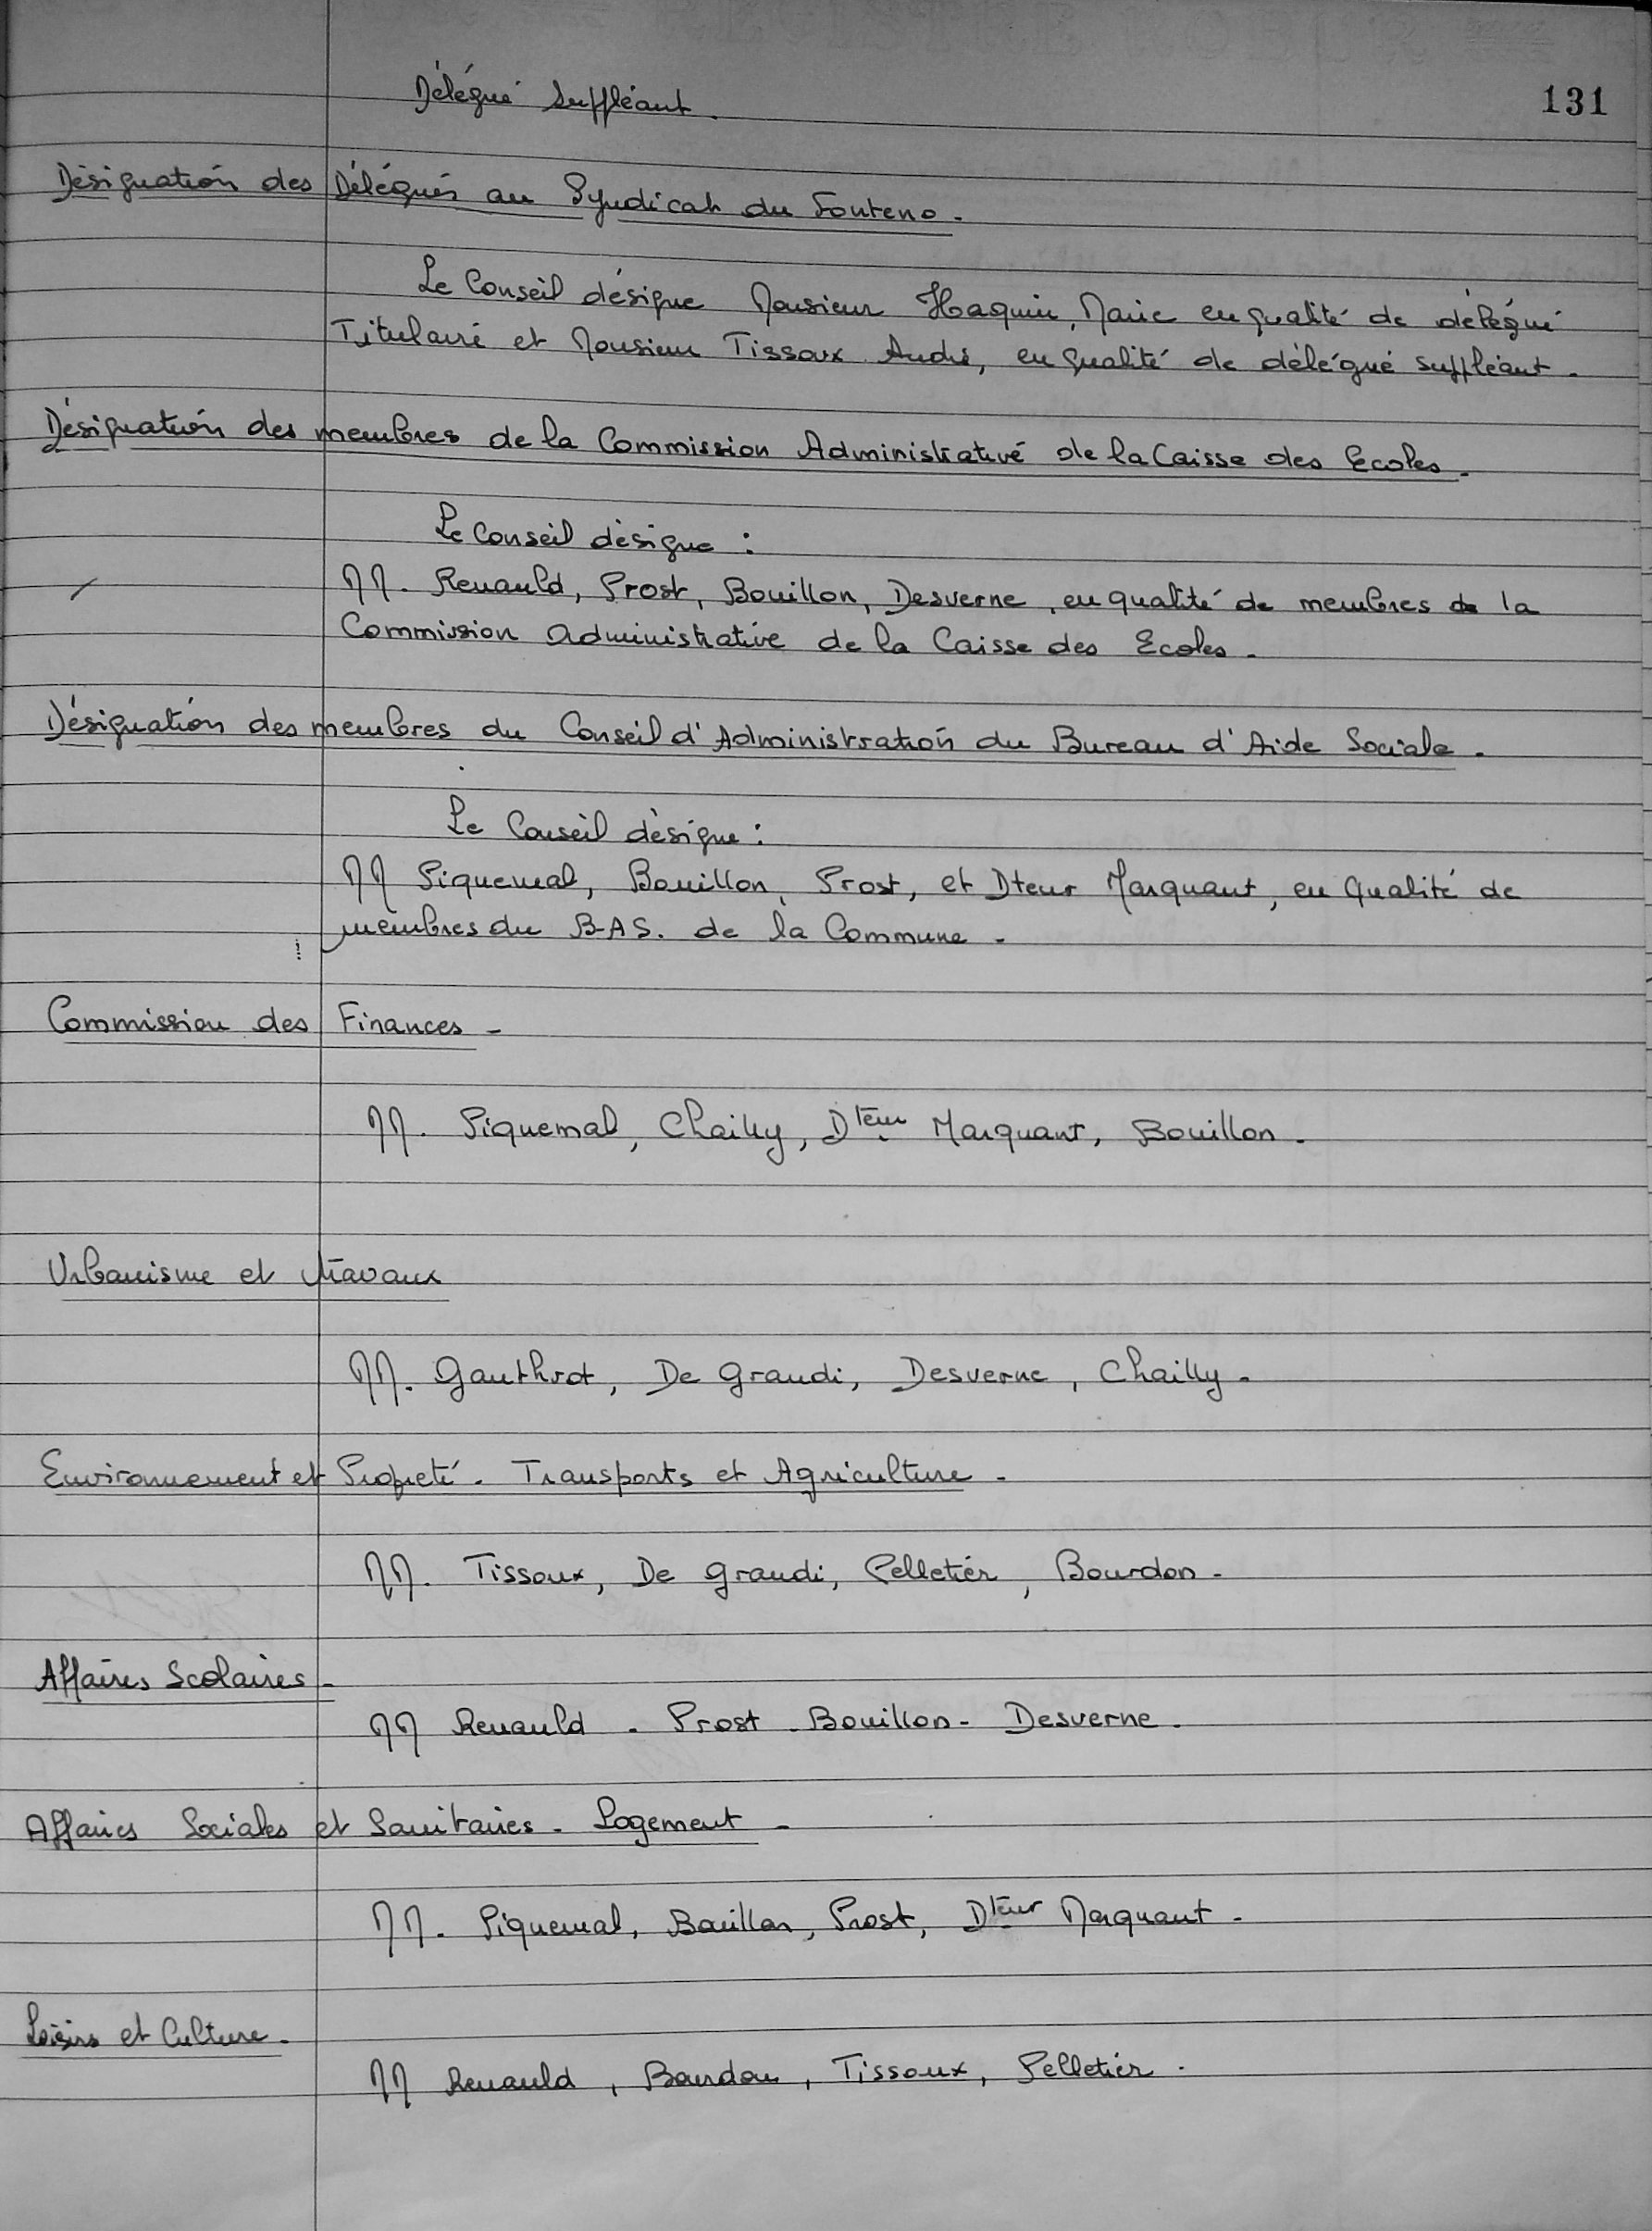 131
Délégué Suppléant.
Désignation des Délégués au Syndicat du Fonteno.
Le Conseil désigne Monsieur Haquin, Maire en qualité de délégué
Titulaire et Monsieur Tissoux André, en qualité de délégué suppléant.
Désignation des membres de la Commission Administrative de la Caisse des Ecoles.
Le Conseil désigne :
MM. Renauld, Prost, Bouillon, Desverne, en qualité de membres de la
Commission administrative de la Caisse des Ecoles.
Désignation des membres du Conseil d'Administration du Bureau d'Aide Sociale.
Le Conseil désigne :
MM Piquemal, Bouillon, Prost, et Dteur Marquant, en qualité de
membres du B.A.S. de la Commune.
Commission des Finances -
MM. Piquemal, Chailly, Dteur Marquant, Bouillon.
Urbanisme et travaux
MM. Gauthrot, De Grandi, Desverne, Chailly.
Environnement et Propreté - Transports et Agriculture -
MM. Tissoux, De Grandi, Pelletier, Bourdon.
Affaires Scolaires -
MM Renauld - Prost - Bouillon - Desverne.
Affaires Sociales et Sanitaires - Logement -
MM. Piquemal, Bouillon, Prost, Dteur Marquant.
Loisirs et Culture -
MM Renauld, Bourdon, Tissoux, Pelletier.